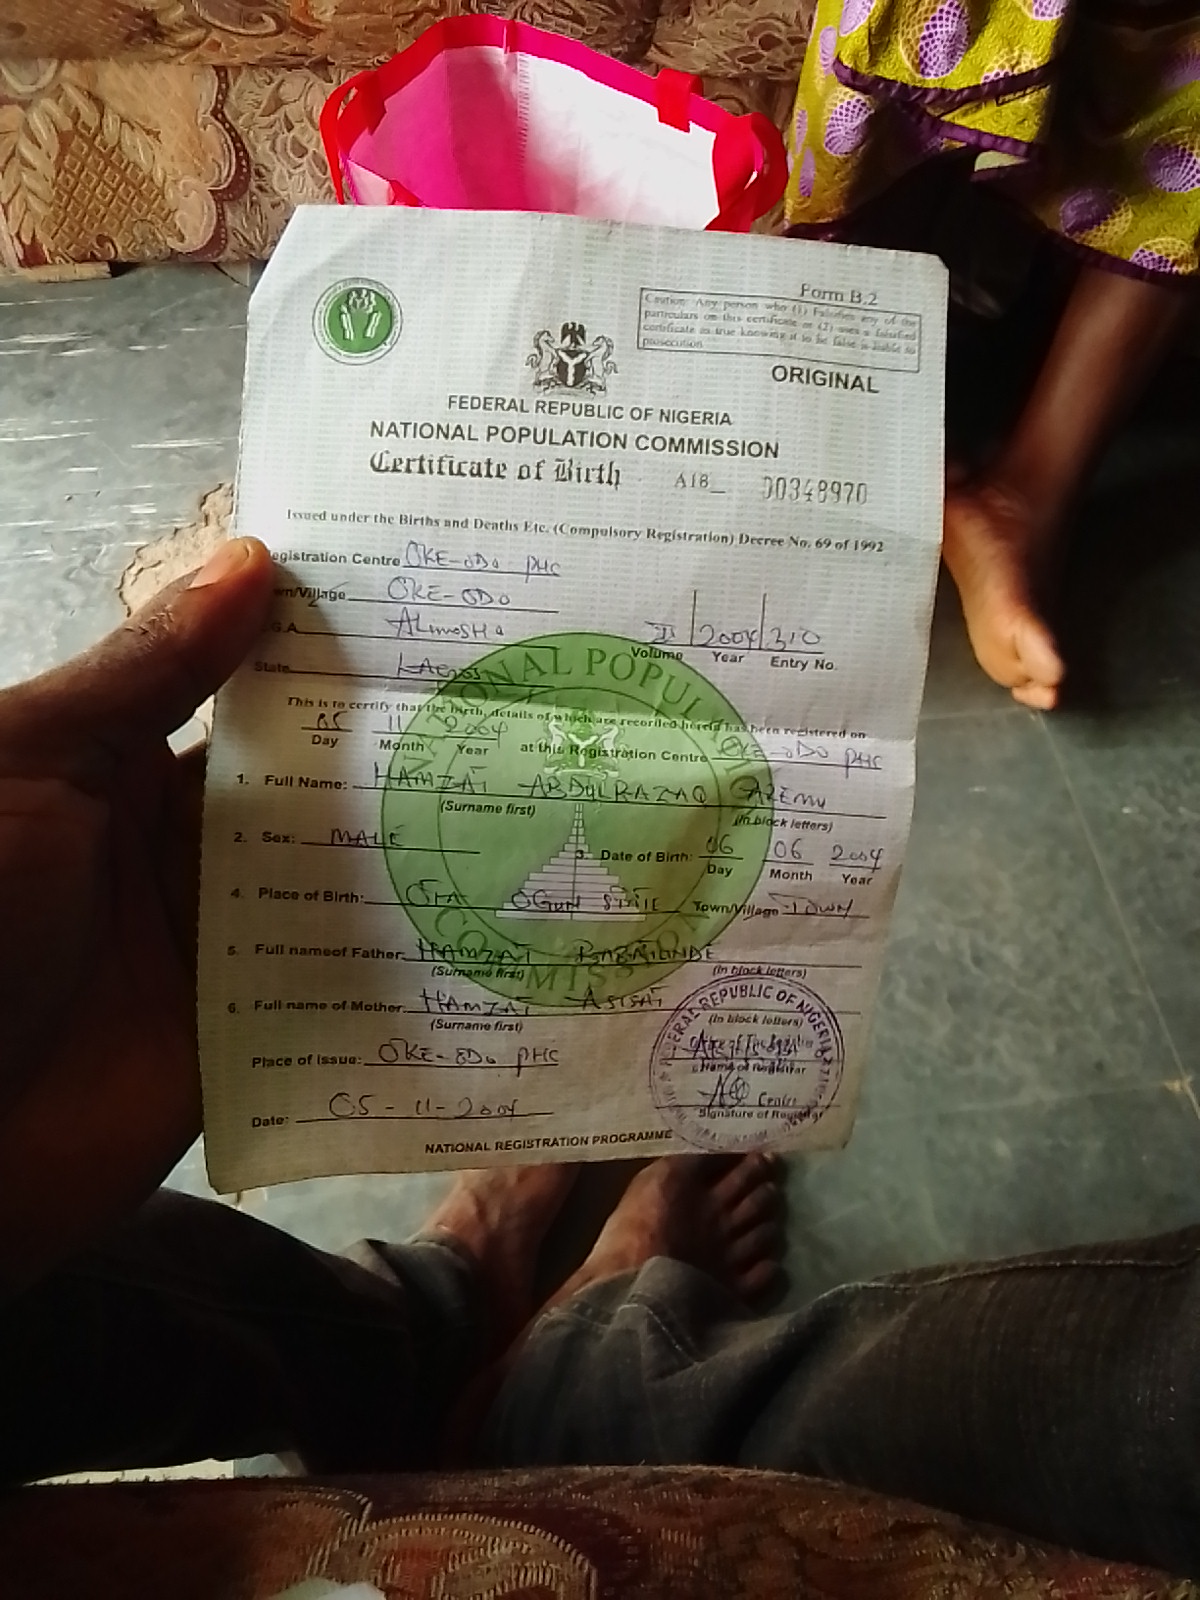 Form B.2
Caution: Any person who (1) Falsifies any of the
particulars on this certificate or (2) uses a falsified
certificate as true knowing it to be false is liable to
prosecution
ORIGINAL
FEDERAL REPUBLIC OF NIGERIA
NATIONAL POPULATION COMMISSION
Certificate of Birth A18_ 00348970
Issued under the Births and Deaths Etc. (Compulsory Registration) Decree No. 69 of 1992
egistration Centre OKE-ODO PHC
wn/Village OKE-ODO
G.A. ALIMOSHO
II 2004 310
Volume Year Entry No.
State LAGOS
This is to certify that the birth, details of which are recorded herein has been registered on
05 11 2004 at this Registration Centre OKE-ODO PHC
Day Month Year
1. Full Name: HAMZAT ABDULRAZAQ AREMU
(Surname first) (In block letters)
2. Sex: MALE 3. Date of Birth: 06 06 2004
Day Month Year
4. Place of Birth: OTA OGUN STATE Town/Village TOWN
5. Full nameof Father: HAMZAT BABATUNDE
(Surname first) (In block letters)
6. Full name of Mother: HAMZAT ASISAT
(Surname first) (In block letters)
Place of Issue: OKE-ODO PHC
Name of Registrar
Centre
Signature of Registrar
Date: 05-11-2004
NATIONAL REGISTRATION PROGRAMME
NATIONAL POPULATION COMMISSION
FEDERAL REPUBLIC OF NIGERIA